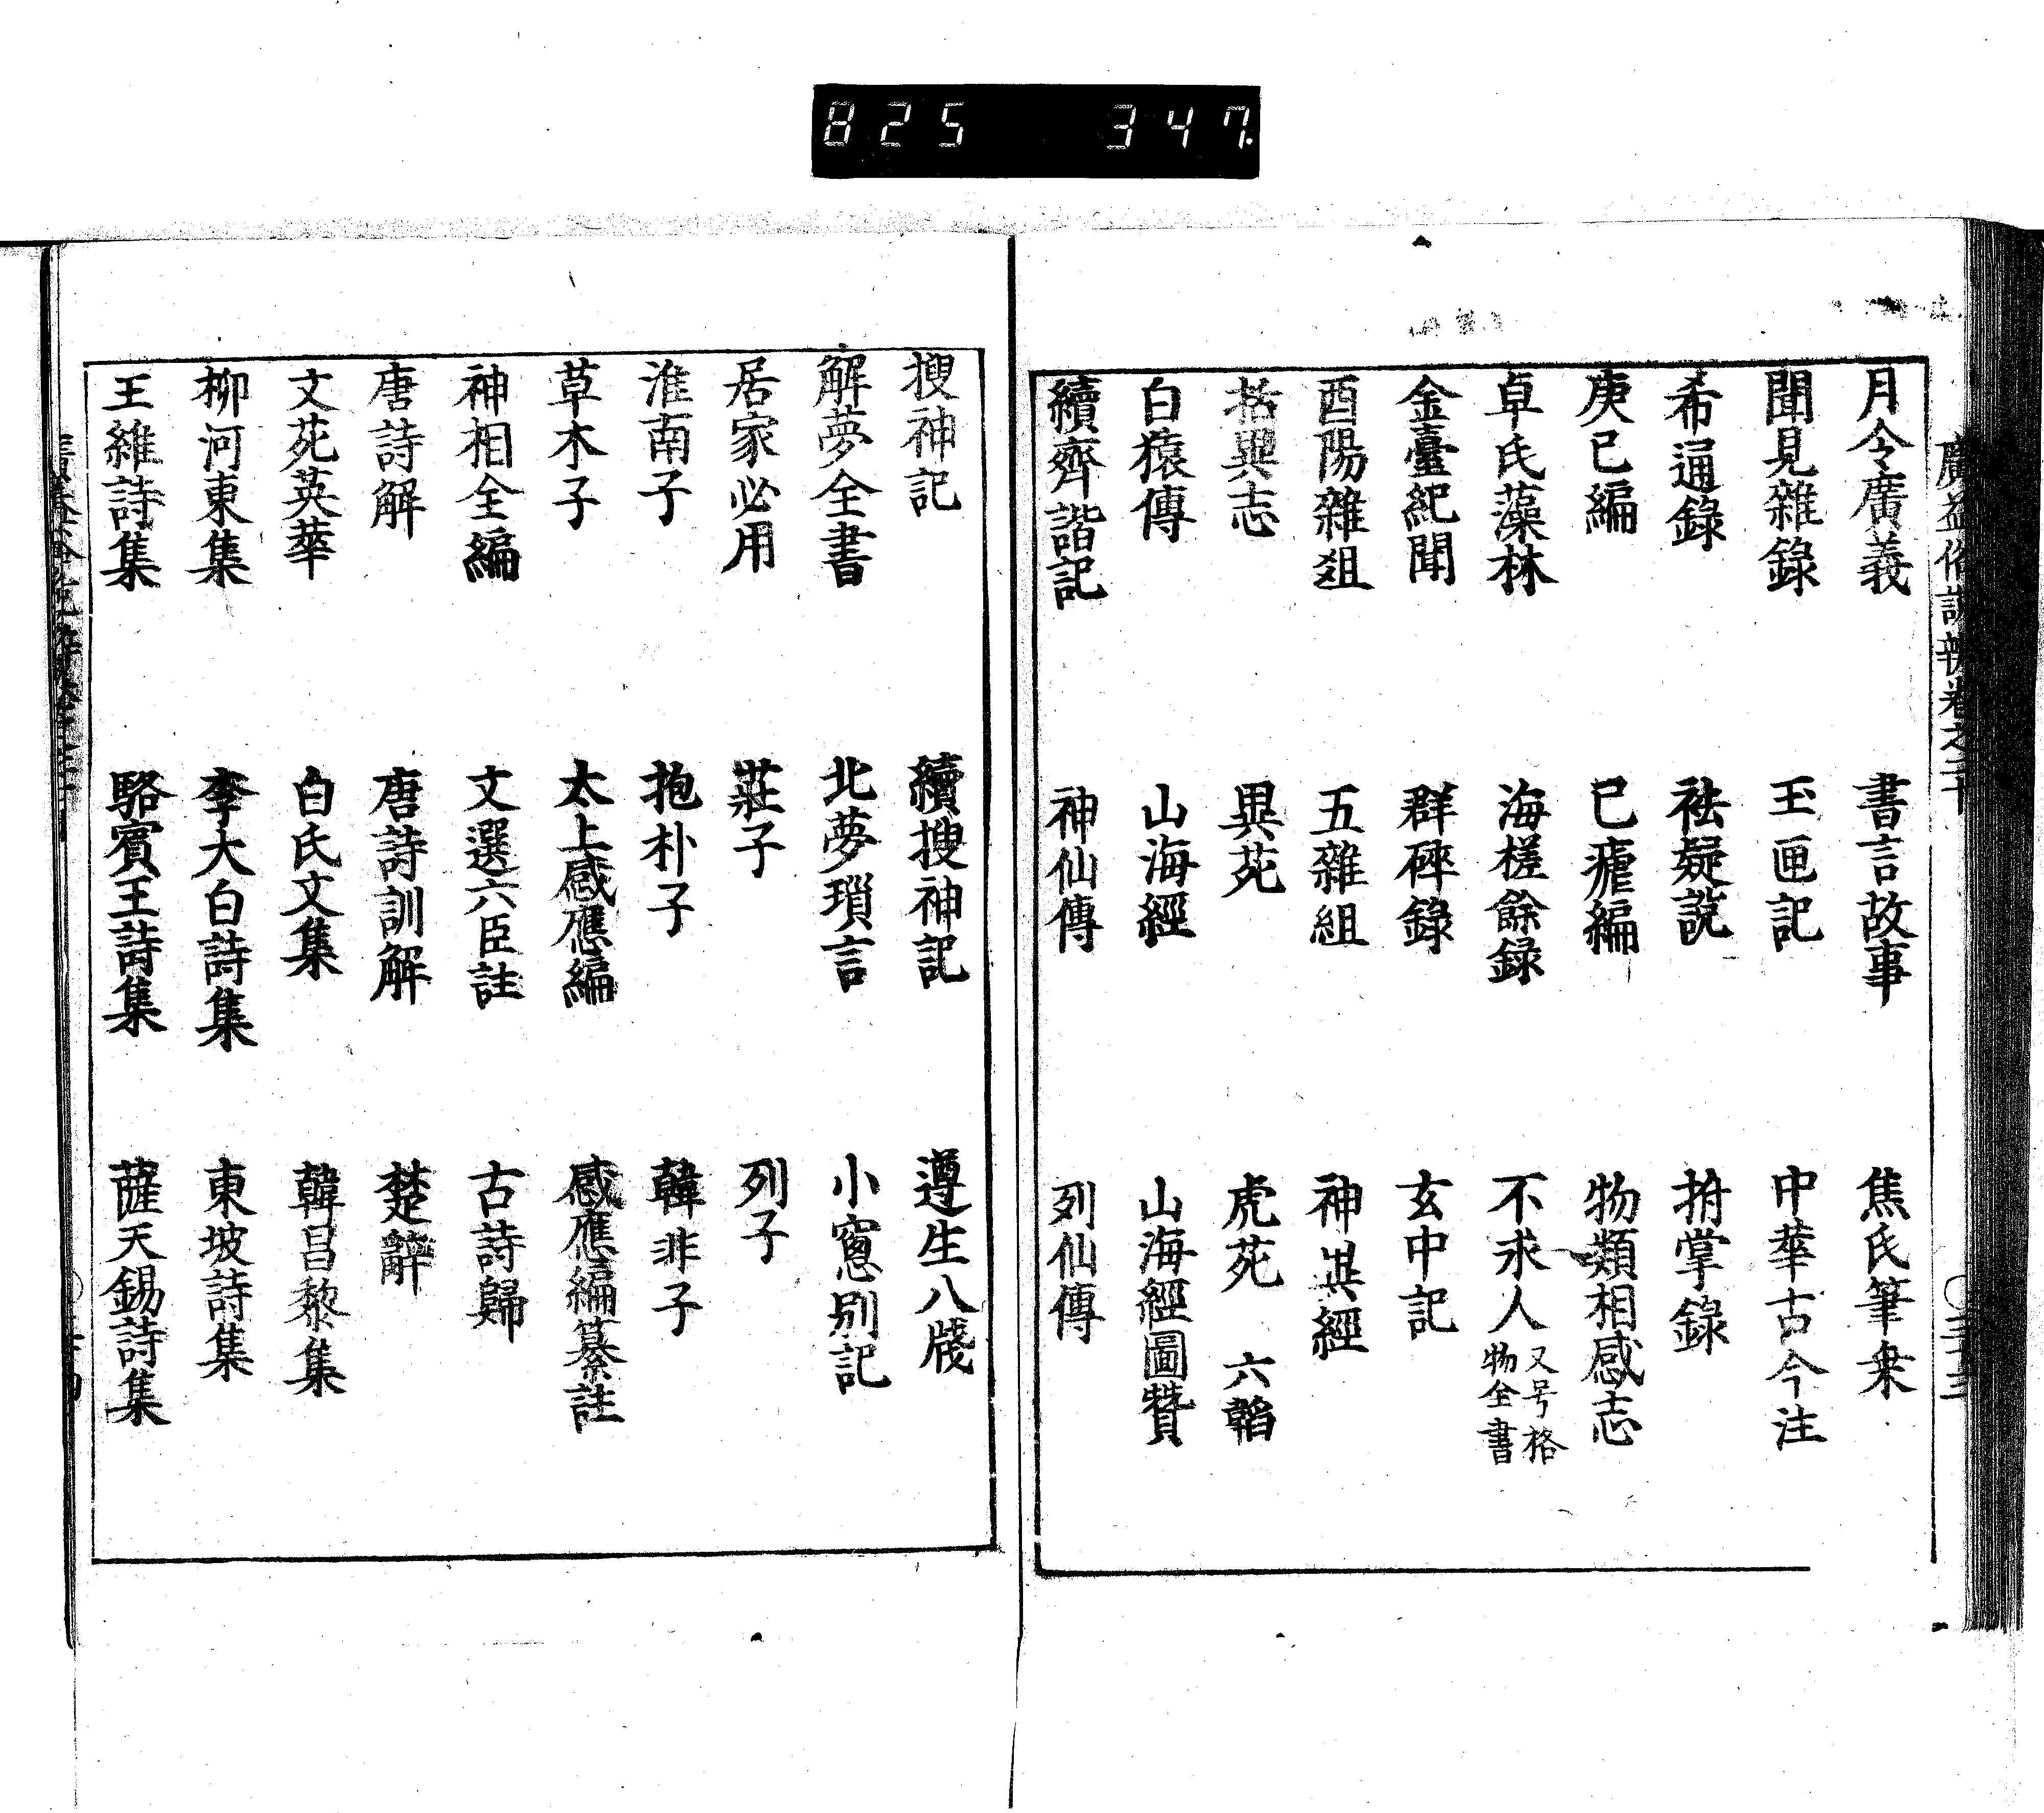 825 347.
月令廣義 書言故事 焦氏筆乗
聞見雜錄 玉匣記 中華古今注
希通錄 祛疑說 拊掌錄
庚巳編 已瘧編 物類相感志
卓氏藻林 海槎餘録 不求人 又号格物全書
金臺紀聞 群碎錄 玄中記
酉陽雜俎 五雜組 神異經
括異志 異苑 虎苑 六韜
白猿傳 山海經 山海經圖贊
續齊諧記 神仙傳 列仙傳
搜神記 續搜神記 遵生八牋
解夢全書 北夢瑣言 小窓別記
居家必用 莊子 列子
淮南子 抱朴子 韓非子
草木子 太上感應編 感應編纂註
神相全編 文選六臣註 古詩歸
唐詩解 唐詩訓解 楚辭
文苑英華 白氏文集 韓昌黎集
柳河東集 李太白詩集 東坡詩集
王維詩集 駱賓王詩集 薩天錫詩集